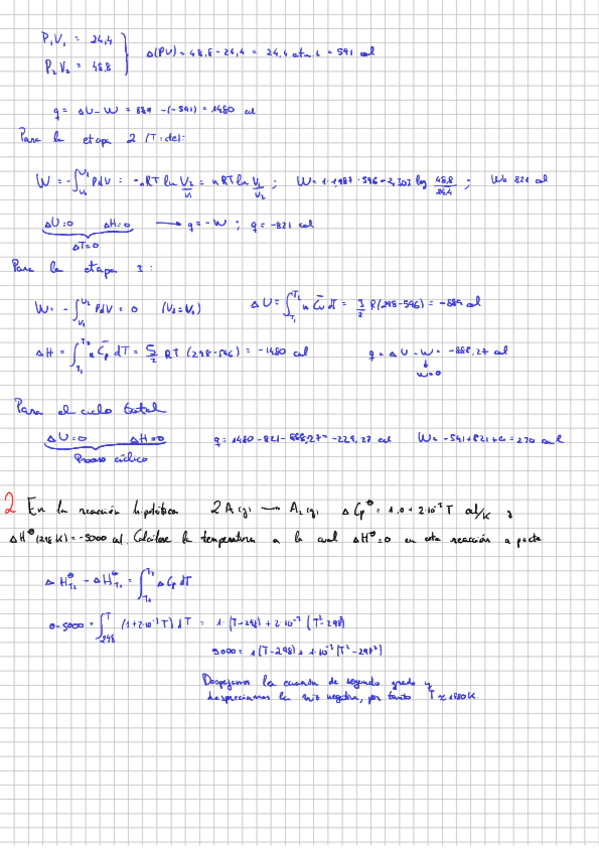 P₁V₁ = 24,4
P₂V₂ = 48,8
Δ(PV) = 48,8 - 24,4 = 24,4 atm·L = 591 cal
q = ΔU - W = 889 - (-591) = 1480 cal
Para la etapa 2 (T=cte):
W = -∫_{V₁}^{V₂} PdV = -nRT ln V₂/V₁ = nRT ln V₁/V₂ ; W = 1·1'987·596·2,303 log 48,8/24,4 ; W = 821 cal
ΔU=0 ΔH=0 ⟶ q = -W ; q = -821 cal
ΔT=0
Para la etapa 3:
W = -∫_{V₁}^{V₂} PdV = 0 (V₂=V₁) ΔU = ∫_{T₁}^{T₂} n C̄v dT = 3/2 R(298-596) = -889 cal
ΔH = ∫_{T₁}^{T₂} n C̄p dT = 5/2 RT (298-596) = -1480 cal q = ΔU - W = -888,27 cal
W=0
Para el ciclo total
ΔU=0 ΔH=0 q = 1480 - 821 - 888,27 = -229,27 cal W = -591+821+0 = 230 cal
Proceso cíclico
2 En la reacción hipotética 2A(g) ⟶ A₂(g) ΔCp° = 1.0 + 2·10⁻³ T cal/K y
ΔH°(298K) = -5000 cal. Calcúlese la temperatura a la cual ΔH°=0 en esta reacción a pcte
ΔH°_{T₂} - ΔH°_{T₁} = ∫_{T₁}^{T₂} ΔCp dT
0-5000 = ∫_{298}^{T} (1+2·10⁻³T) dT = 1·(T-298) + 2·10⁻³ (T²-298)
5000 = 1(T-298) + 1·10⁻³ (T²-298²)
Despejamos la ecuación de segundo grado y
despreciamos la raíz negativa, por tanto T ≈ 1880K.